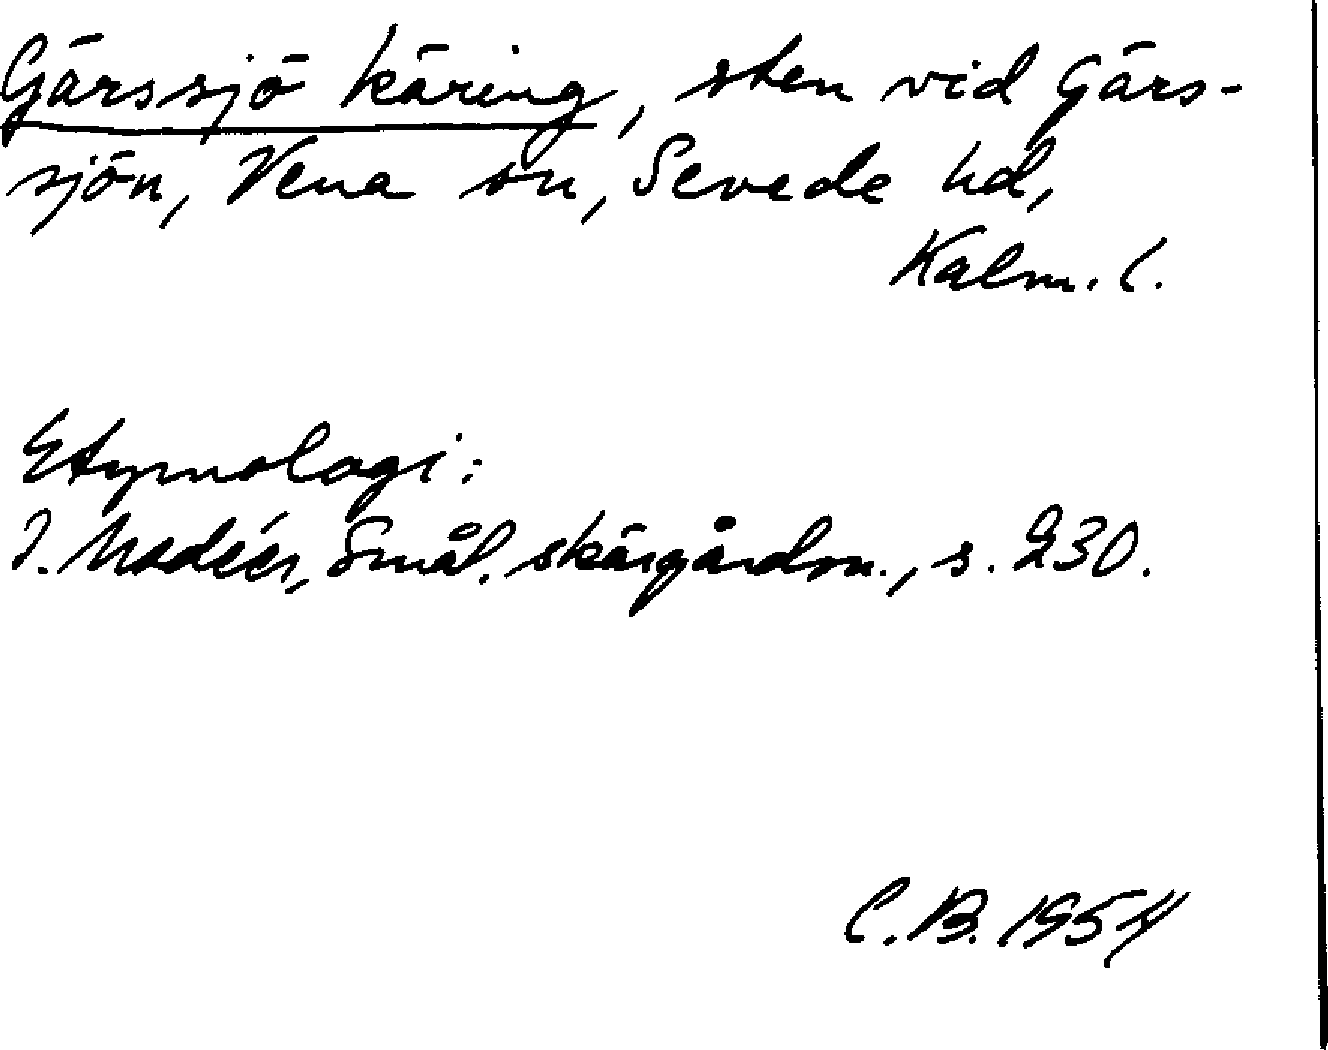 Gärssjö käring, sten vid Gärs-
sjön, Vena sn, Sevede hd,
Kalm. l.
Etymologi:
I. Modéer, Smål. skärgårdsn., s. 230.
C.B. 1954